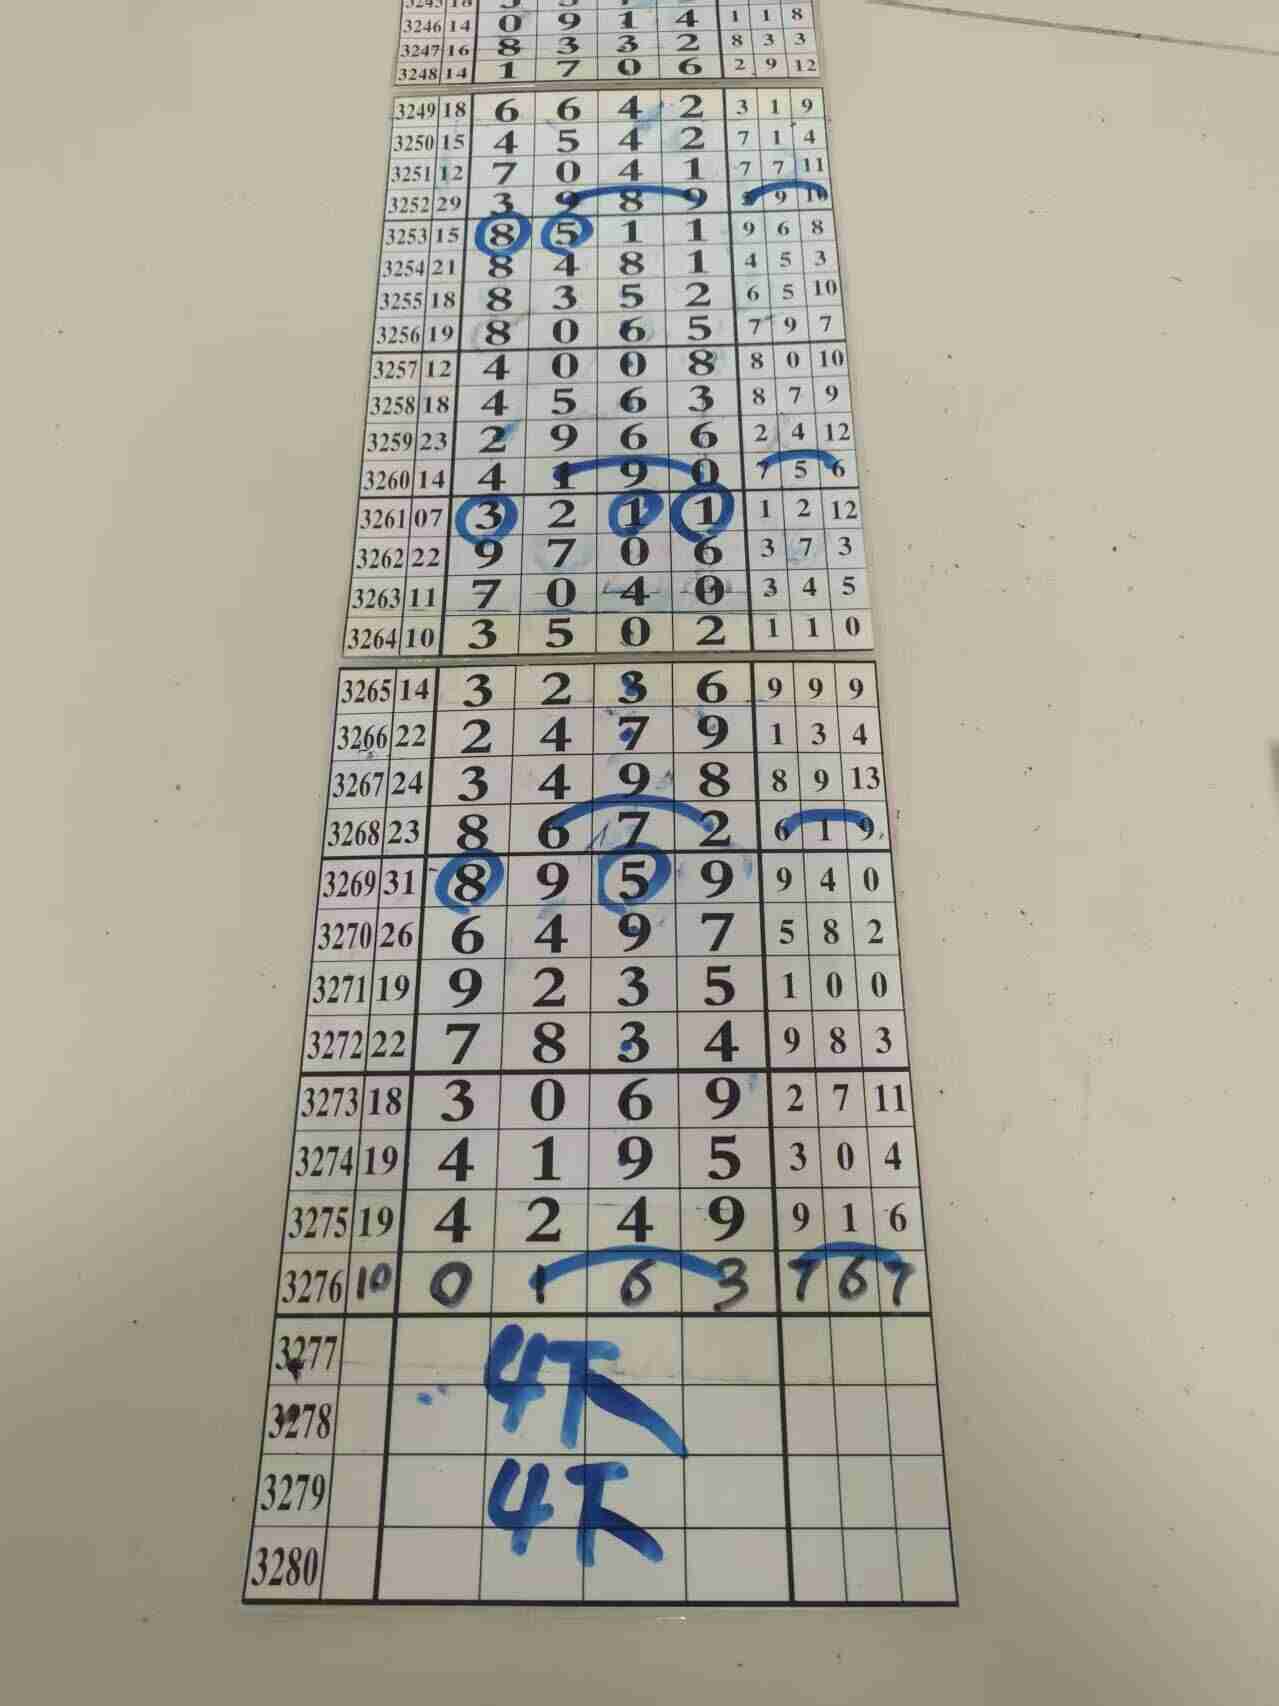 3246 14 0 9 1 4 1 1 8
3247 16 8 3 3 2 8 3 3
3248 14 1 7 0 6 2 9 12
3249 18 6 6 4 2 3 1 9
3250 15 4 5 4 2 7 1 4
3251 12 7 0 4 1 7 7 11
3252 29 3 9 8 9 9 10
3253 15 8 5 1 1 9 6 8
3254 21 8 4 8 1 4 5 3
3255 18 8 3 5 2 6 5 10
3256 19 8 0 6 5 7 9 7
3257 12 4 0 0 8 8 0 10
3258 18 4 5 6 3 8 7 9
3259 23 2 9 6 6 2 4 12
3260 14 4 1 9 0 7 5 6
3261 07 3 2 1 1 1 2 12
3262 22 9 7 0 6 3 7 3
3263 11 7 0 4 0 3 4 5
3264 10 3 5 0 2 1 1 0
3265 14 3 2 3 6 9 9 9
3266 22 2 4 7 9 1 3 4
3267 24 3 4 9 8 8 9 13
3268 23 8 6 7 2 6 1 9
3269 31 8 9 5 9 9 4 0
3270 26 6 4 9 7 5 8 2
3271 19 9 2 3 5 1 0 0
3272 22 7 8 3 4 9 8 3
3273 18 3 0 6 9 2 7 11
3274 19 4 1 9 5 3 0 4
3275 19 4 2 4 9 9 1 6
3276 10 0 1 6 3 7 6 7
3277
4下
3278
3279
4下
3280